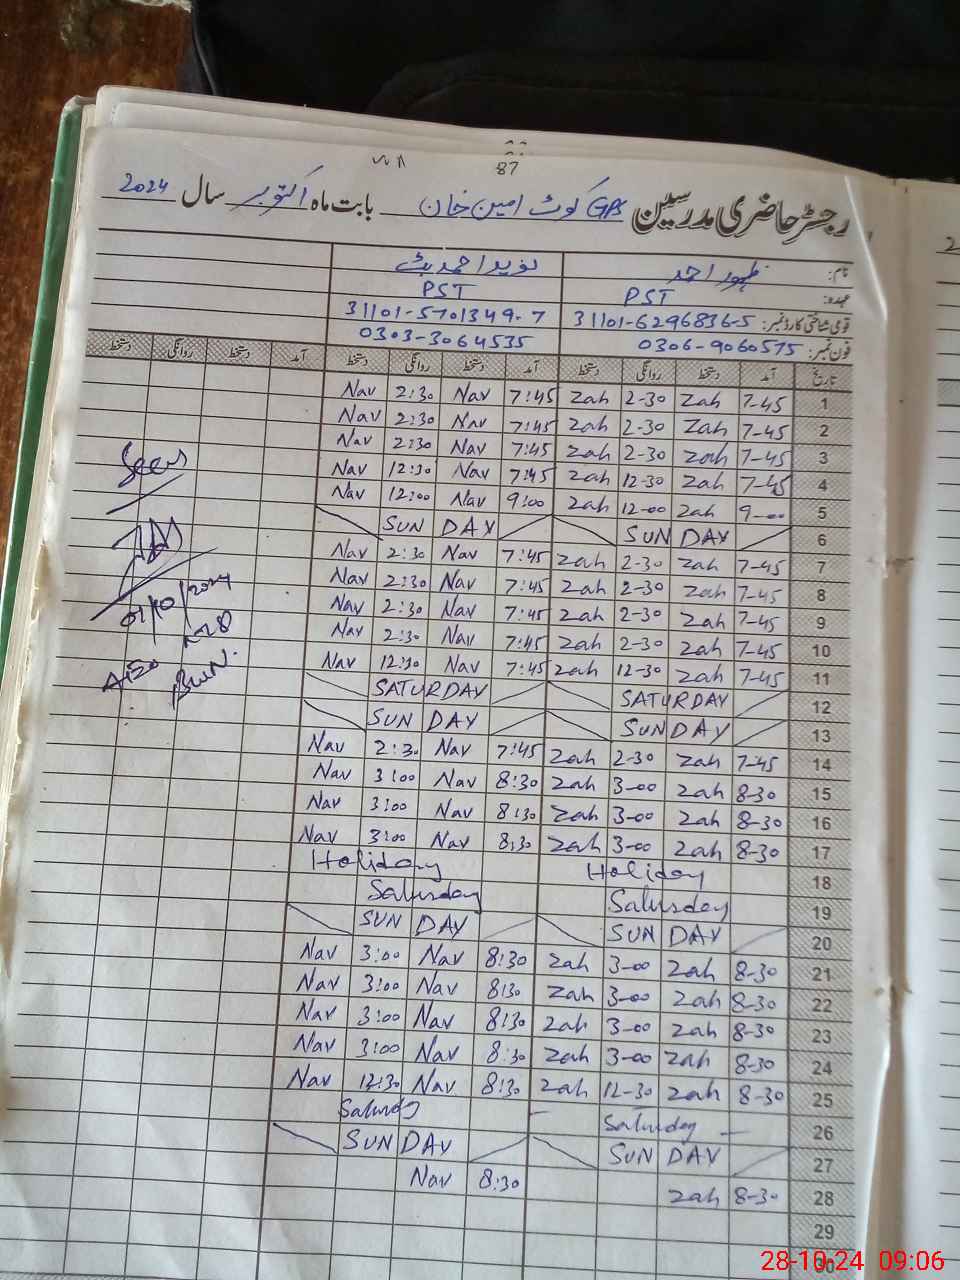 87
رجسٹر حاضری مدرسین GPS کوٹ امین خان بابت ماہ اکتوبر سال 2024
نام: ظہور احمد نوید احمد بٹ
عہدہ: PST PST
قومی شناختی کارڈ نمبر: 31101-6296836-5 31101-5701349-7
فون نمبر: 0306-9060575 0303-3064535
تاریخ آمد دستخط روانگی دستخط آمد دستخط روانگی دستخط آمد دستخط روانگی دستخط
1 7-45 Zah 2-30 Zah 7:45 Nav 2:30 Nav
2 7-45 Zah 2-30 Zah 7:45 Nav 2:30 Nav
3 7-45 Zah 2-30 Zah 7:45 Nav 2:30 Nav
4 7-45 Zah 12-30 Zah 7:45 Nav 12:30 Nav
5 9-00 Zah 12-00 Zah 9:00 Nav 12:00 Nav
6 SUN DAY SUN DAY
7 7-45 Zah 2-30 Zah 7:45 Nav 2:30 Nav
8 7-45 Zah 2-30 Zah 7:45 Nav 2:30 Nav
9 7-45 Zah 2-30 Zah 7:45 Nav 2:30 Nav
10 7-45 Zah 2-30 Zah 7:45 Nav 2:30 Nav
11 7-45 Zah 12-30 Zah 7:45 Nav 12:30 Nav
12 SATURDAY SATURDAY
13 SUN DAY SUN DAY
14 7-45 Zah 2-30 Zah 7:45 Nav 2:30 Nav
15 8-30 Zah 3-00 Zah 8:30 Nav 3:00 Nav
16 8-30 Zah 3-00 Zah 8:30 Nav 3:00 Nav
17 8-30 Zah 3-00 Zah 8:30 Nav 3:00 Nav
18 Holiday Holiday
19 Saturday Saturday
20 SUN DAY SUN DAY
21 8-30 Zah 3-00 Zah 8:30 Nav 3:00 Nav
22 8-30 Zah 3-00 Zah 8:30 Nav 3:00 Nav
23 8-30 Zah 3-00 Zah 8:30 Nav 3:00 Nav
24 8-30 Zah 3-00 Zah 8:30 Nav 3:00 Nav
25 8-30 Zah 12-30 Zah 8:30 Nav 12:30 Nav
26 Saturday Saturday
27 SUN DAY SUN DAY
28 8-30 Zah 8:30 Nav
29
30
Seen
01/10/2024
BWN.
28-10-24 09:06